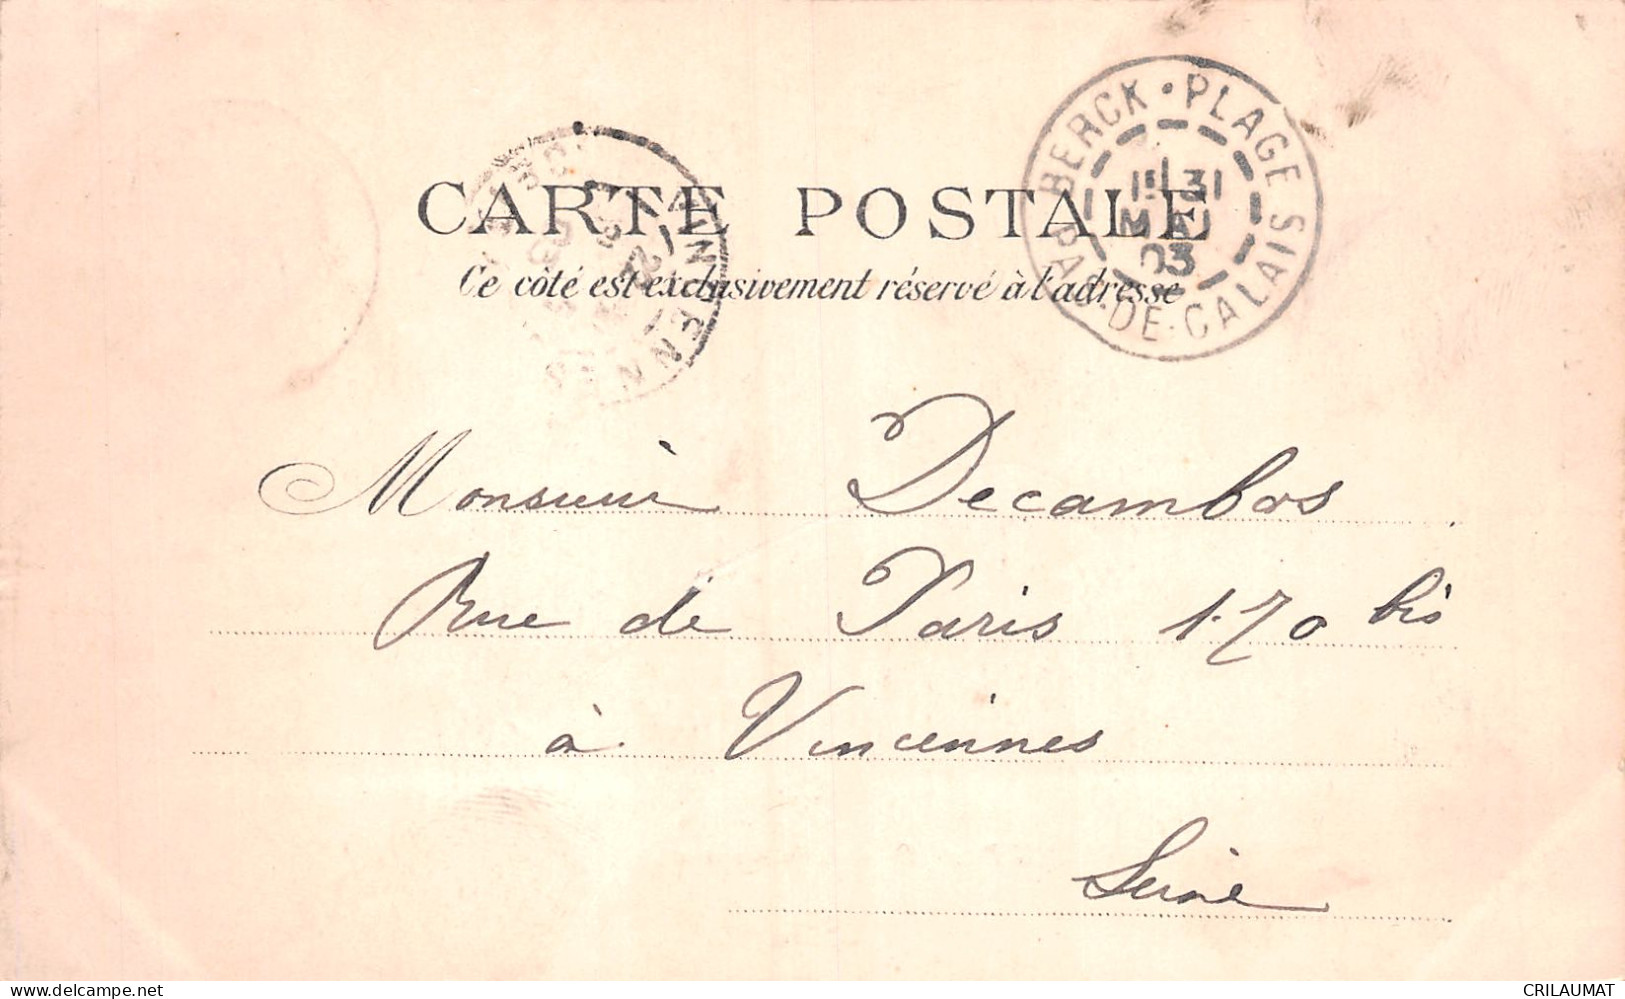 BERCK · PLAGE
PAS-DE-CALAIS
31
MAI
03
CARTE POSTALE
Ce côté est exclusivement réservé à l'adresse
Monsieur Decambos
Rue de Paris 170 bis
à Vincennes
Seine
CRILAUMAT